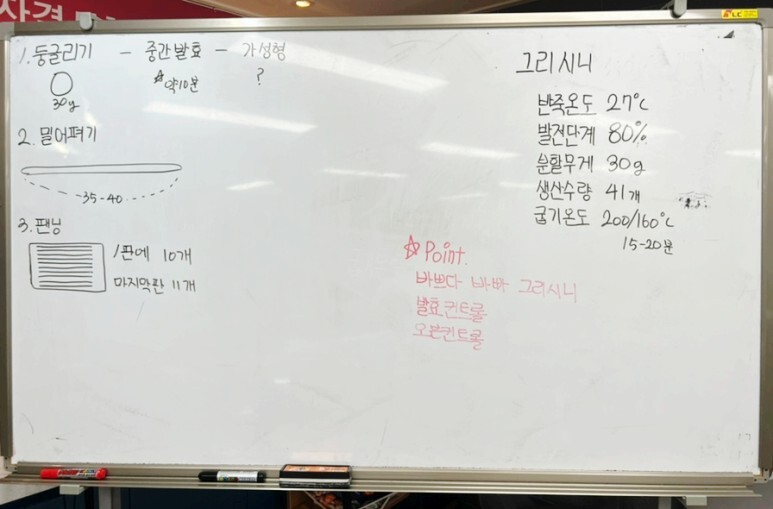 1. 둥글리기 - 중간발효 - 가성형
30g ☆약10분 ?
2. 밀어펴기
35-40
3. 팬닝
1판에 10개
마지막판 11개
그리시니
반죽온도 27°C
발전단계 80%
분할무게 30g
생산수량 41개
굽기온도 200/160°C
15-20분
☆Point.
바쁘다 바빠 그리시니
발효컨트롤
오븐컨트롤